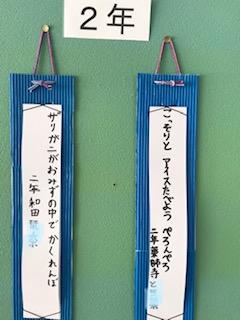 2年
こっそりと アイスたべよう ぺろんぺろ
二年 薬師寺 と
ザリガニがおみずの中で かくれんぼ
二年 和田